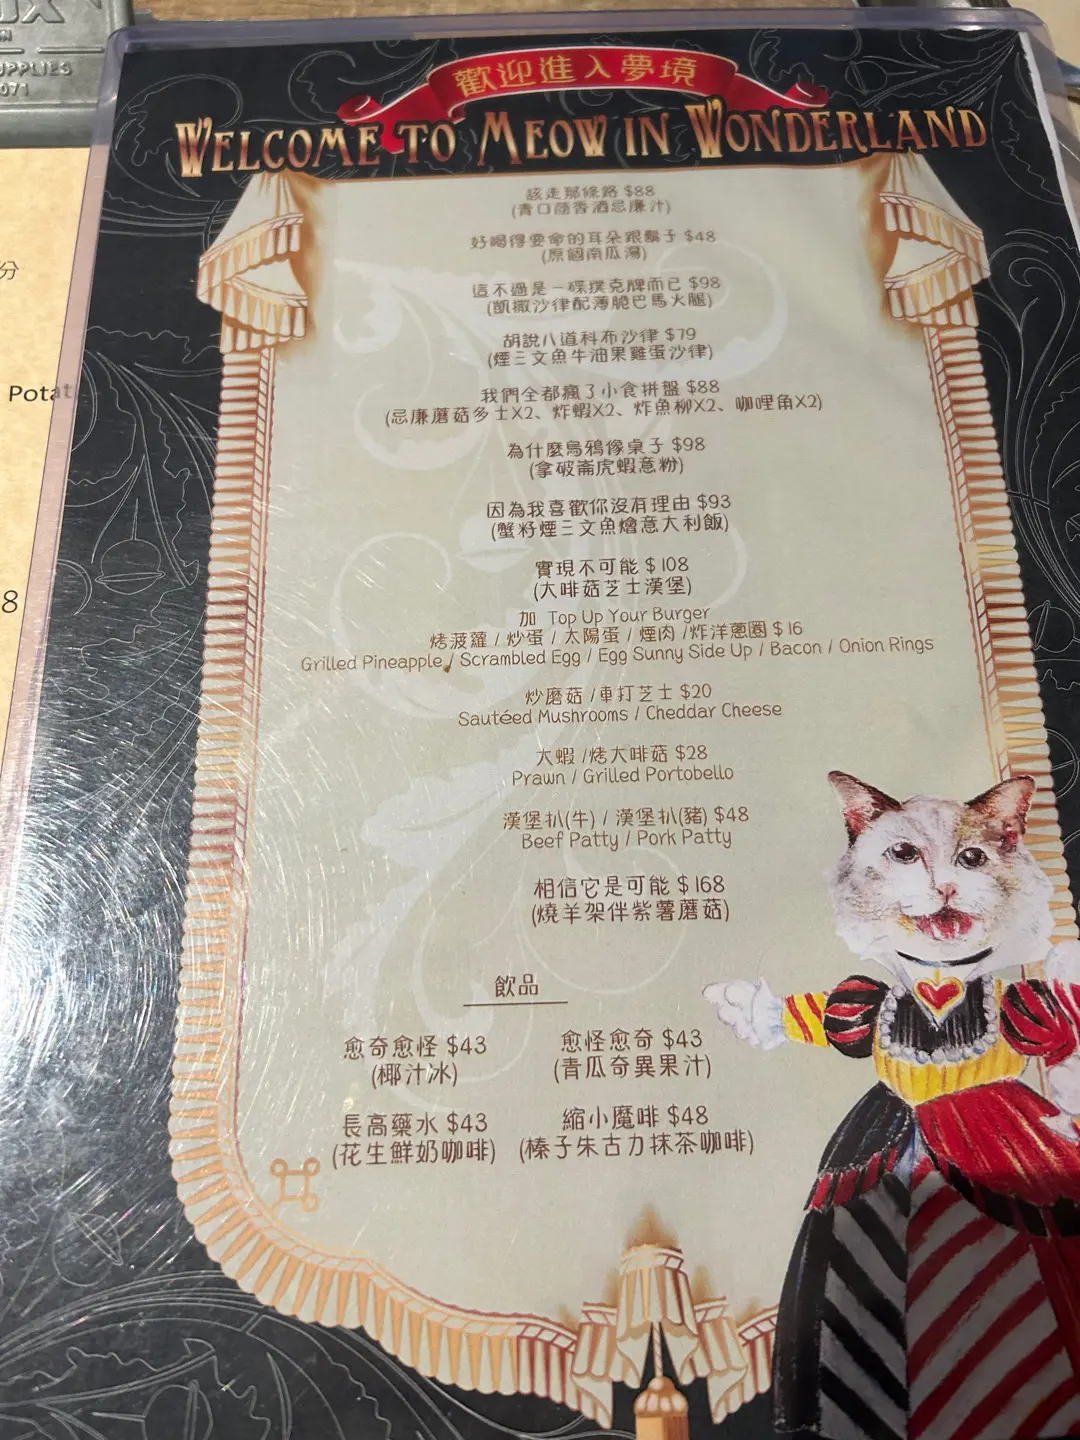 UX
PPLIES
071
分
Potat
8
歡迎進入夢境
WELCOME TO MEOW IN WONDERLAND
該走那條路 $88
(青口茴香酒忌廉汁)
好喝得要命的耳朵跟鬍子 $48
(原個南瓜湯)
這不過是一碟撲克牌而已 $98
(凱撒沙律配薄脆巴馬火腿)
胡說八道科布沙律 $79
(煙三文魚牛油果雞蛋沙律)
我們全都瘋了小食拼盤 $88
(忌廉蘑菇多士X2、炸蝦X2、炸魚柳X2、咖哩角X2)
為什麼烏鴉像桌子 $98
(拿破崙虎蝦意粉)
因為我喜歡你沒有理由 $93
(蟹籽煙三文魚燴意大利飯)
實現不可能 $108
(大啡菇芝士漢堡)
加 Top Up Your Burger
烤菠蘿 / 炒蛋 / 太陽蛋 / 煙肉 /炸洋蔥圈 $16
Grilled Pineapple / Scrambled Egg / Egg Sunny Side Up / Bacon / Onion Rings
炒磨菇 /車打芝士 $20
Sautéed Mushrooms / Cheddar Cheese
大蝦 /烤大啡菇 $28
Prawn / Grilled Portobello
漢堡扒(牛) / 漢堡扒(豬) $48
Beef Patty / Pork Patty
相信它是可能 $168
(燒羊架伴紫薯蘑菇)
飲品
愈奇愈怪 $43
(椰汁冰)
愈怪愈奇 $43
(青瓜奇異果汁)
長高藥水 $43
(花生鮮奶咖啡)
縮小魔啡 $48
(榛子朱古力抹茶咖啡)